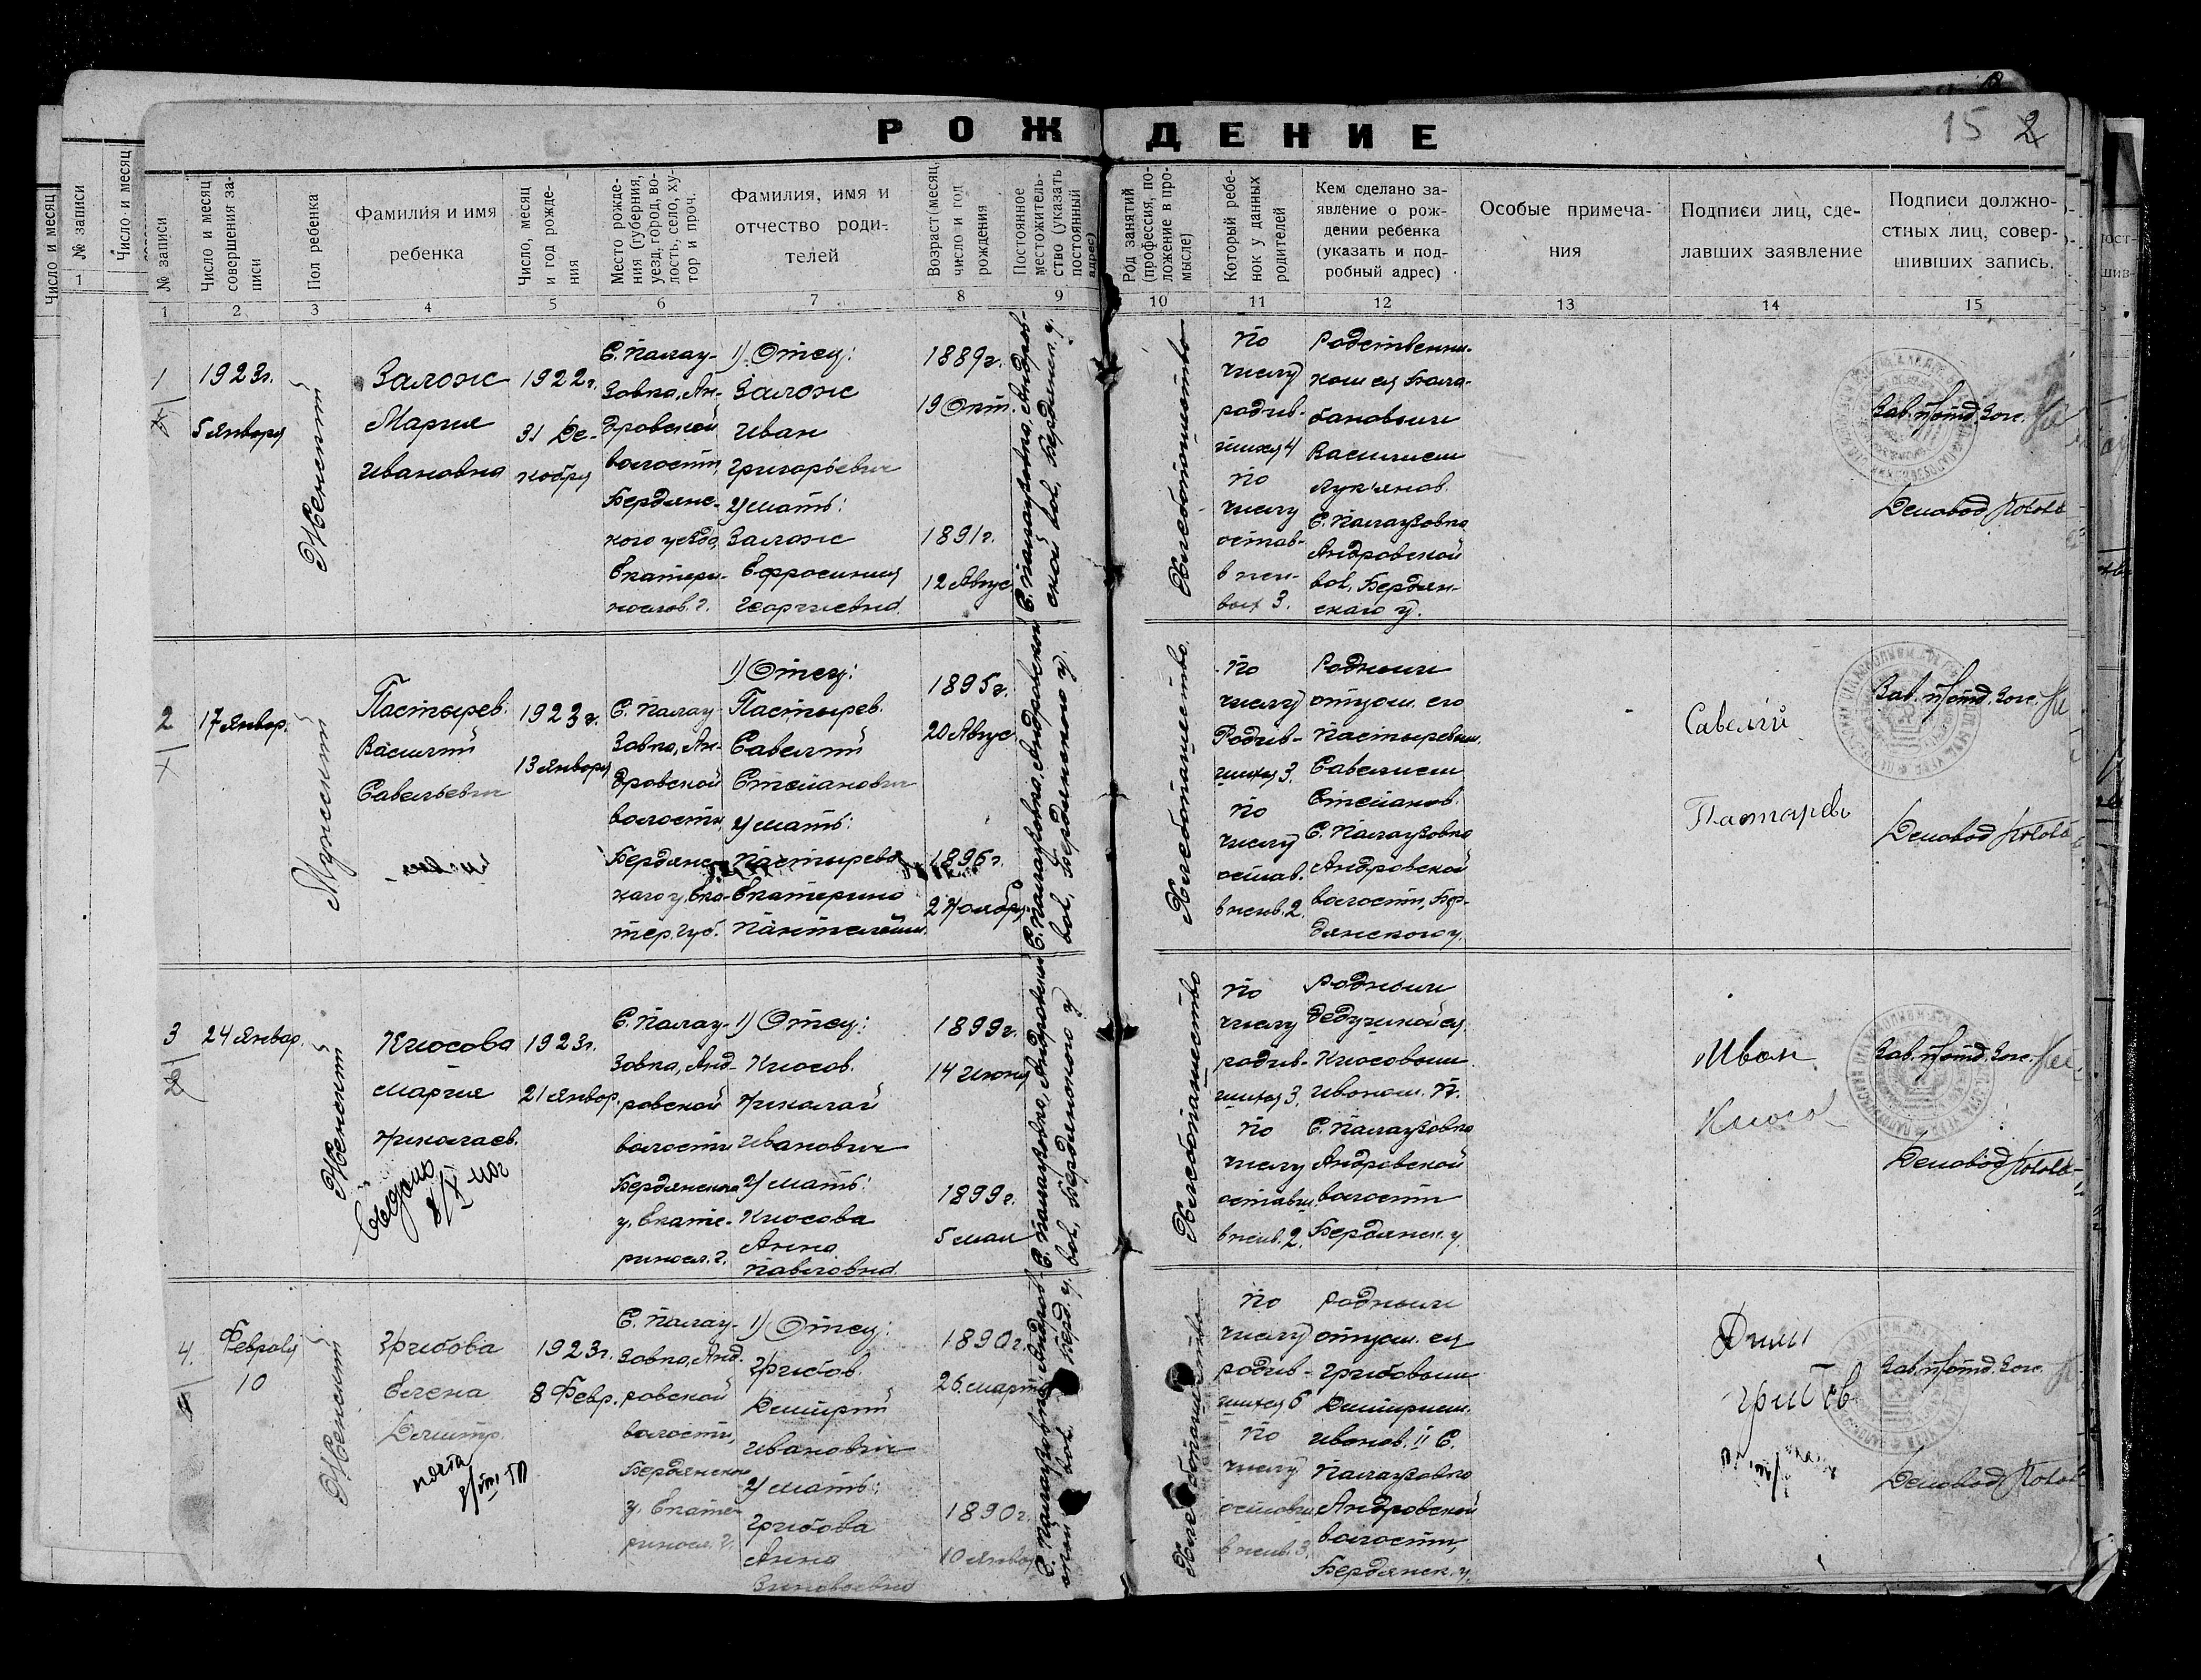 РОЖДЕНИЕ
15 2
№ записи
Число и месяц совершения за-
писи
Пол ребенка
Фамилия и имя
ребенка
Число, месяц
и год рожде-
ния
Место рожде-
ния (губерния,
уезд, город, во-
лость, село, ху-
тор и проч.
Фамилия, имя и
отчество роди-
телей
Возраст (месяц,
число и год
рождения
Постоянное
местожитель-
ство (указать
постоянный
адрес)
Род занятий
(профессия, по-
ложение в про-
мысле)
Который ребе-
нок у данных
родителей
Кем сделано за-
явление о рож-
дении ребенка
(указать и под-
робный адрес)
Особые примеча-
ния
Подписи лиц, сде-
лавших заявление
Подписи должно-
стных лиц, совер-
шивших запись.
1 2 3 4 5 6 7 8 9 10 11 12 13 14 15
1
1923г.
5 Января
Женский
Залож
Мария
Ивановна
1922г.
31 Де-
кабря
С. Палау-
зовка, Ан-
дровской
волости,
Бердянс-
кого уезда,
Екатери-
нослов. г.
1) Отец:
Залож
Иван
Григорьевич
2) Мать:
Залож
Ефросиния
Георгиевна.
1889г.
19 Окт.
1891г.
12 Авгус.
С. Палаузовка, Андров-
ской вол., Бердянск. у.
Хлебопашество
По
числу
родив-
шихся 4
По
числу
остав-
в жи-
вых 3.
Родственни-
ком ея Бала-
бановым
Василием
Лукьянов.
С. Палаузовка
Андровской
вол., Бердян-
скаго у.
Зав. п/отд. Загс.
Деловод
2
17 Январ.
Мужский
Пастырев.
Василий
Савельевич
1923г.
13 Января
С. Палау-
зовка, Ан-
дровской
волости,
Бердянс-
каго у, Ека-
тер. губ.
1) Отец:
Пастырев.
Савелий
Степанович
2) Мать:
Пастырева
Екатерина
Пантелейм.
1895г.
20 Авгус.
1896г.
2 Ноября
С. Палаузовка, Андровской
вол., Бердянского у.
Хлебопашество.
По
числу
Родив-
шихся 3.
По
числу
остав.
в жив. 2.
Родным
отцом. его
Пастыревым.
Савелием
Степанов.
С. Палаузовка
Андровской
волости, Бер-
дянского у.
Савелий
Пастарев
Зав. п/отд. Загс.
Деловод
3
24 Январ.
Женский
Клюсова
Мария
Николаев.
1923г.
21 Январ.
С. Палау-
зовка, Анд-
ровской
волости
Бердянского
у, Екате-
ринос. г.
1) Отец:
Клюсов.
Николай
Иванович
2) Мать:
Клюсова
Анна
Павловна.
1899г.
14 Июня
1899г.
5 мая
С. Палаузовка, Андровской
вол., Бердянского у
Хлебопашество
По
числу
родив-
шихся 3.
По
числу
оставш.
в жив. 2.
Родным
дедушкой ея
Клюсовым
Иваном. П.
С. Палаузовка
Андровской
волости
Бердянск. у.
Иван
Клюсов
Зав. п/отд. Загс.
Деловод
4.
Февраля
10
Женский
Грибова
Елена
Дмитр.
1923г.
8 Февр.
С. Палау-
зовка, Анд-
ровской
волости,
Бердянского
у, Екате-
ринос. г.
1) Отец:
Грибов.
Дмитрий
Иванович
2) Мать:
Грибова
Анна
Зиновьевна
1890г.
26 марта
1890г.
10 Январ
С. Палаузовка, Андров-
ской вол. Берд. у.
Хлебопашество
По
числу
родив-
шихся 6
По
числу
оставш.
в жив. 3.
Родным
отцом. ея
Грибовым
Дмитрием.
Иванов. II С.
Палаузовка
Андровской
волости,
Бердянск. у.
Дими
Грибов
Зав. п/отд. Загс.
Деловод